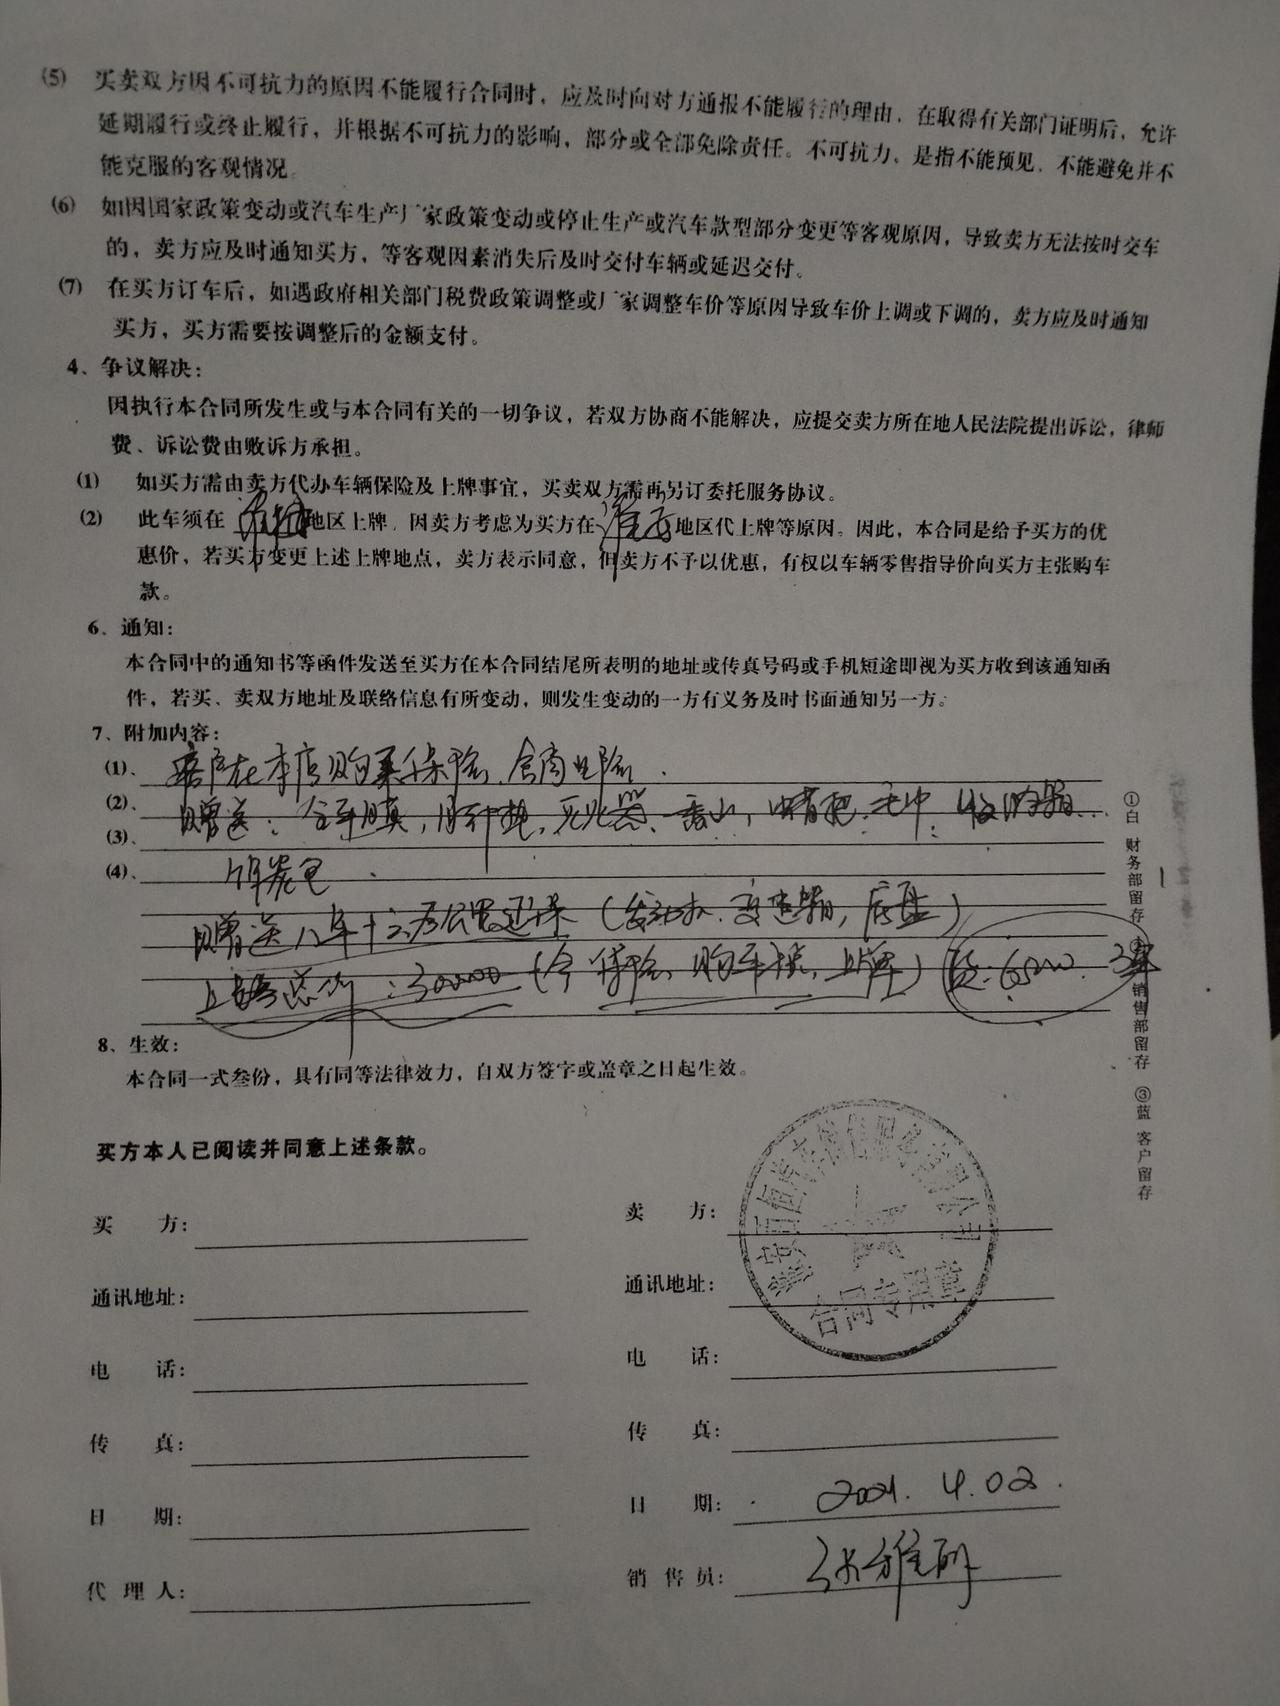 (5) 买卖双方因不可抗力的原因不能履行合同时，应及时向对方通报不能履行的理由，在取得有关部门证明后，允许
延期履行或终止履行，并根据不可抗力的影响，部分或全部免除责任。不可抗力、是指不能预见、不能避免并不
能克服的客观情况。
(6) 如因国家政策变动或汽车生产厂家政策变动或停止生产或汽车款型部分变更等客观原因，导致卖方无法按时交车
的，卖方应及时通知买方，等客观因素消失后及时交付车辆或延迟交付。
(7) 在买方订车后，如遇政府相关部门税费政策调整或厂家调整车价等原因导致车价上调或下调的，卖方应及时通知
买方，买方需要按调整后的金额支付。
4、争议解决：
因执行本合同所发生或与本合同有关的一切争议，若双方协商不能解决，应提交卖方所在地人民法院提出诉讼，律师
费、诉讼费由败诉方承担。
(1) 如买方需由卖方代办车辆保险及上牌事宜，买卖双方需再另订委托服务协议。
(2) 此车须在 地区上牌，因卖方考虑为买方在 淮安 地区代上牌等原因。因此，本合同是给予买方的优
惠价，若买方变更上述上牌地点，卖方表示同意，但卖方不予以优惠，有权以车辆零售指导价向买方主张购车
款。
6、通知：
本合同中的通知书等函件发送至买方在本合同结尾所表明的地址或传真号码或手机短途即视为买方收到该通知函
件，若买、卖双方地址及联络信息有所变动，则发生变动的一方有义务及时书面通知另一方。
7、附加内容：
(1)、客户在本店购买保险、含商业险.
(2)、赠送：全车膜，脚垫，灭火器、香山，
(3)、
(4)、
赠送八年十六万公里延保（发动机、变速箱，底盘）
上路总价：300000（含保险、购车税、上牌）贷：65000 3年
8、生效：
本合同一式叁份，具有同等法律效力，自双方签字或盖章之日起生效。
买方本人已阅读并同意上述条款。
买 方：
通讯地址：
电 话：
传 真：
日 期：
代 理 人：
卖 方：
通讯地址：
电 话：
传 真：
日 期： 2021.4.02.
销 售 员： 张雅
淮安百恒汽车销售服务有限公司
合同专用章
①白 财务部留存 ② 销售部留存 ③蓝 客户留存